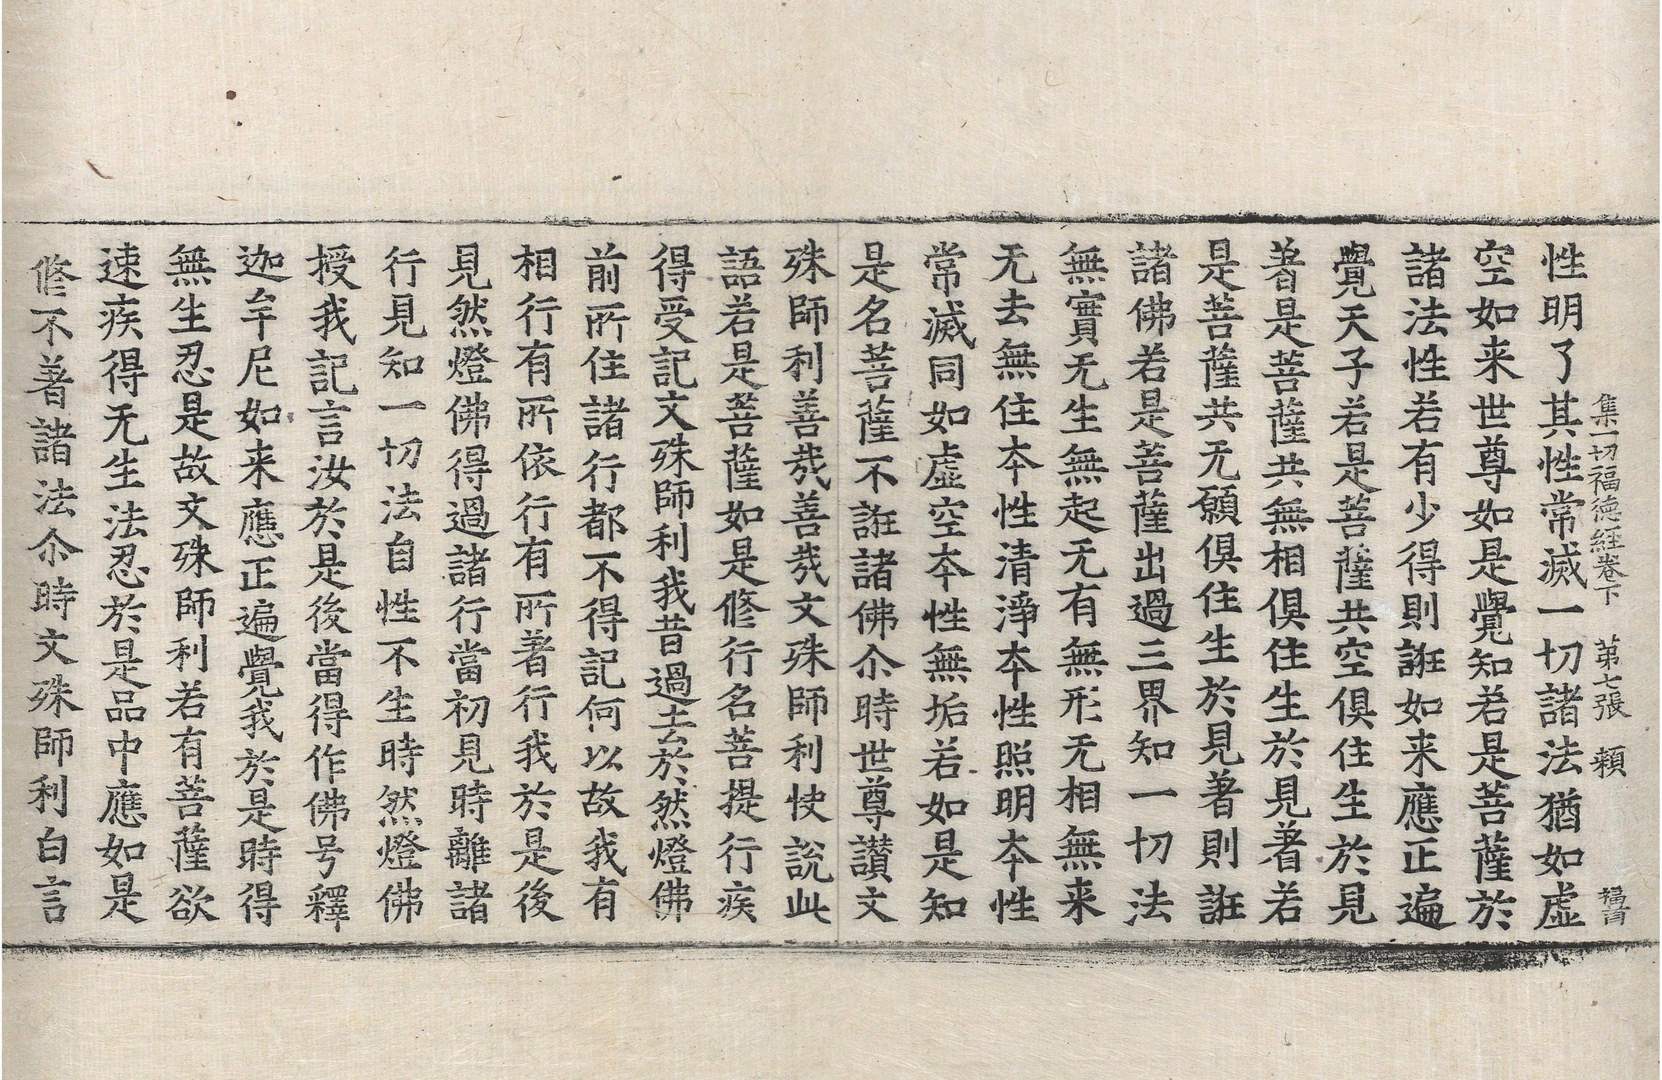 集一切福德経卷下 第七張 頼
性明了其性常滅一切諸法猶如虛
空如来世尊如是覺知若是菩薩於
諸法性若有少得則誑如来應正遍
覺天子若是菩薩共空俱住生於見
著是菩薩共無相俱住生於見著若
是菩薩共无願俱住生於見著則誑
諸佛若是菩薩出過三界知一切法
無實无生無起无有無形无相無来
无去無住夲性清淨夲性照明夲性
常滅同如虛空夲性無垢若如是知
是名菩薩不誑諸佛尒時世尊讃文
殊師利善㢤善㢤文殊師利快說此
語若是菩薩如是修行名菩提行疾
得受記文殊師利我昔過去於然燈佛
前所住諸行都不得記何以故我有
相行有所依行有所著行我於是後
見然燈佛得過諸行當初見時離諸
行見知一切法自性不生時然燈佛
授我記言汝於是後當得作佛号釋
迦牟尼如来應正遍覺我於是時得
無生忍是故文殊師利若有菩薩欲
速疾得无生法忍於是品中應如是
修不著諸法尒時文殊師利白言